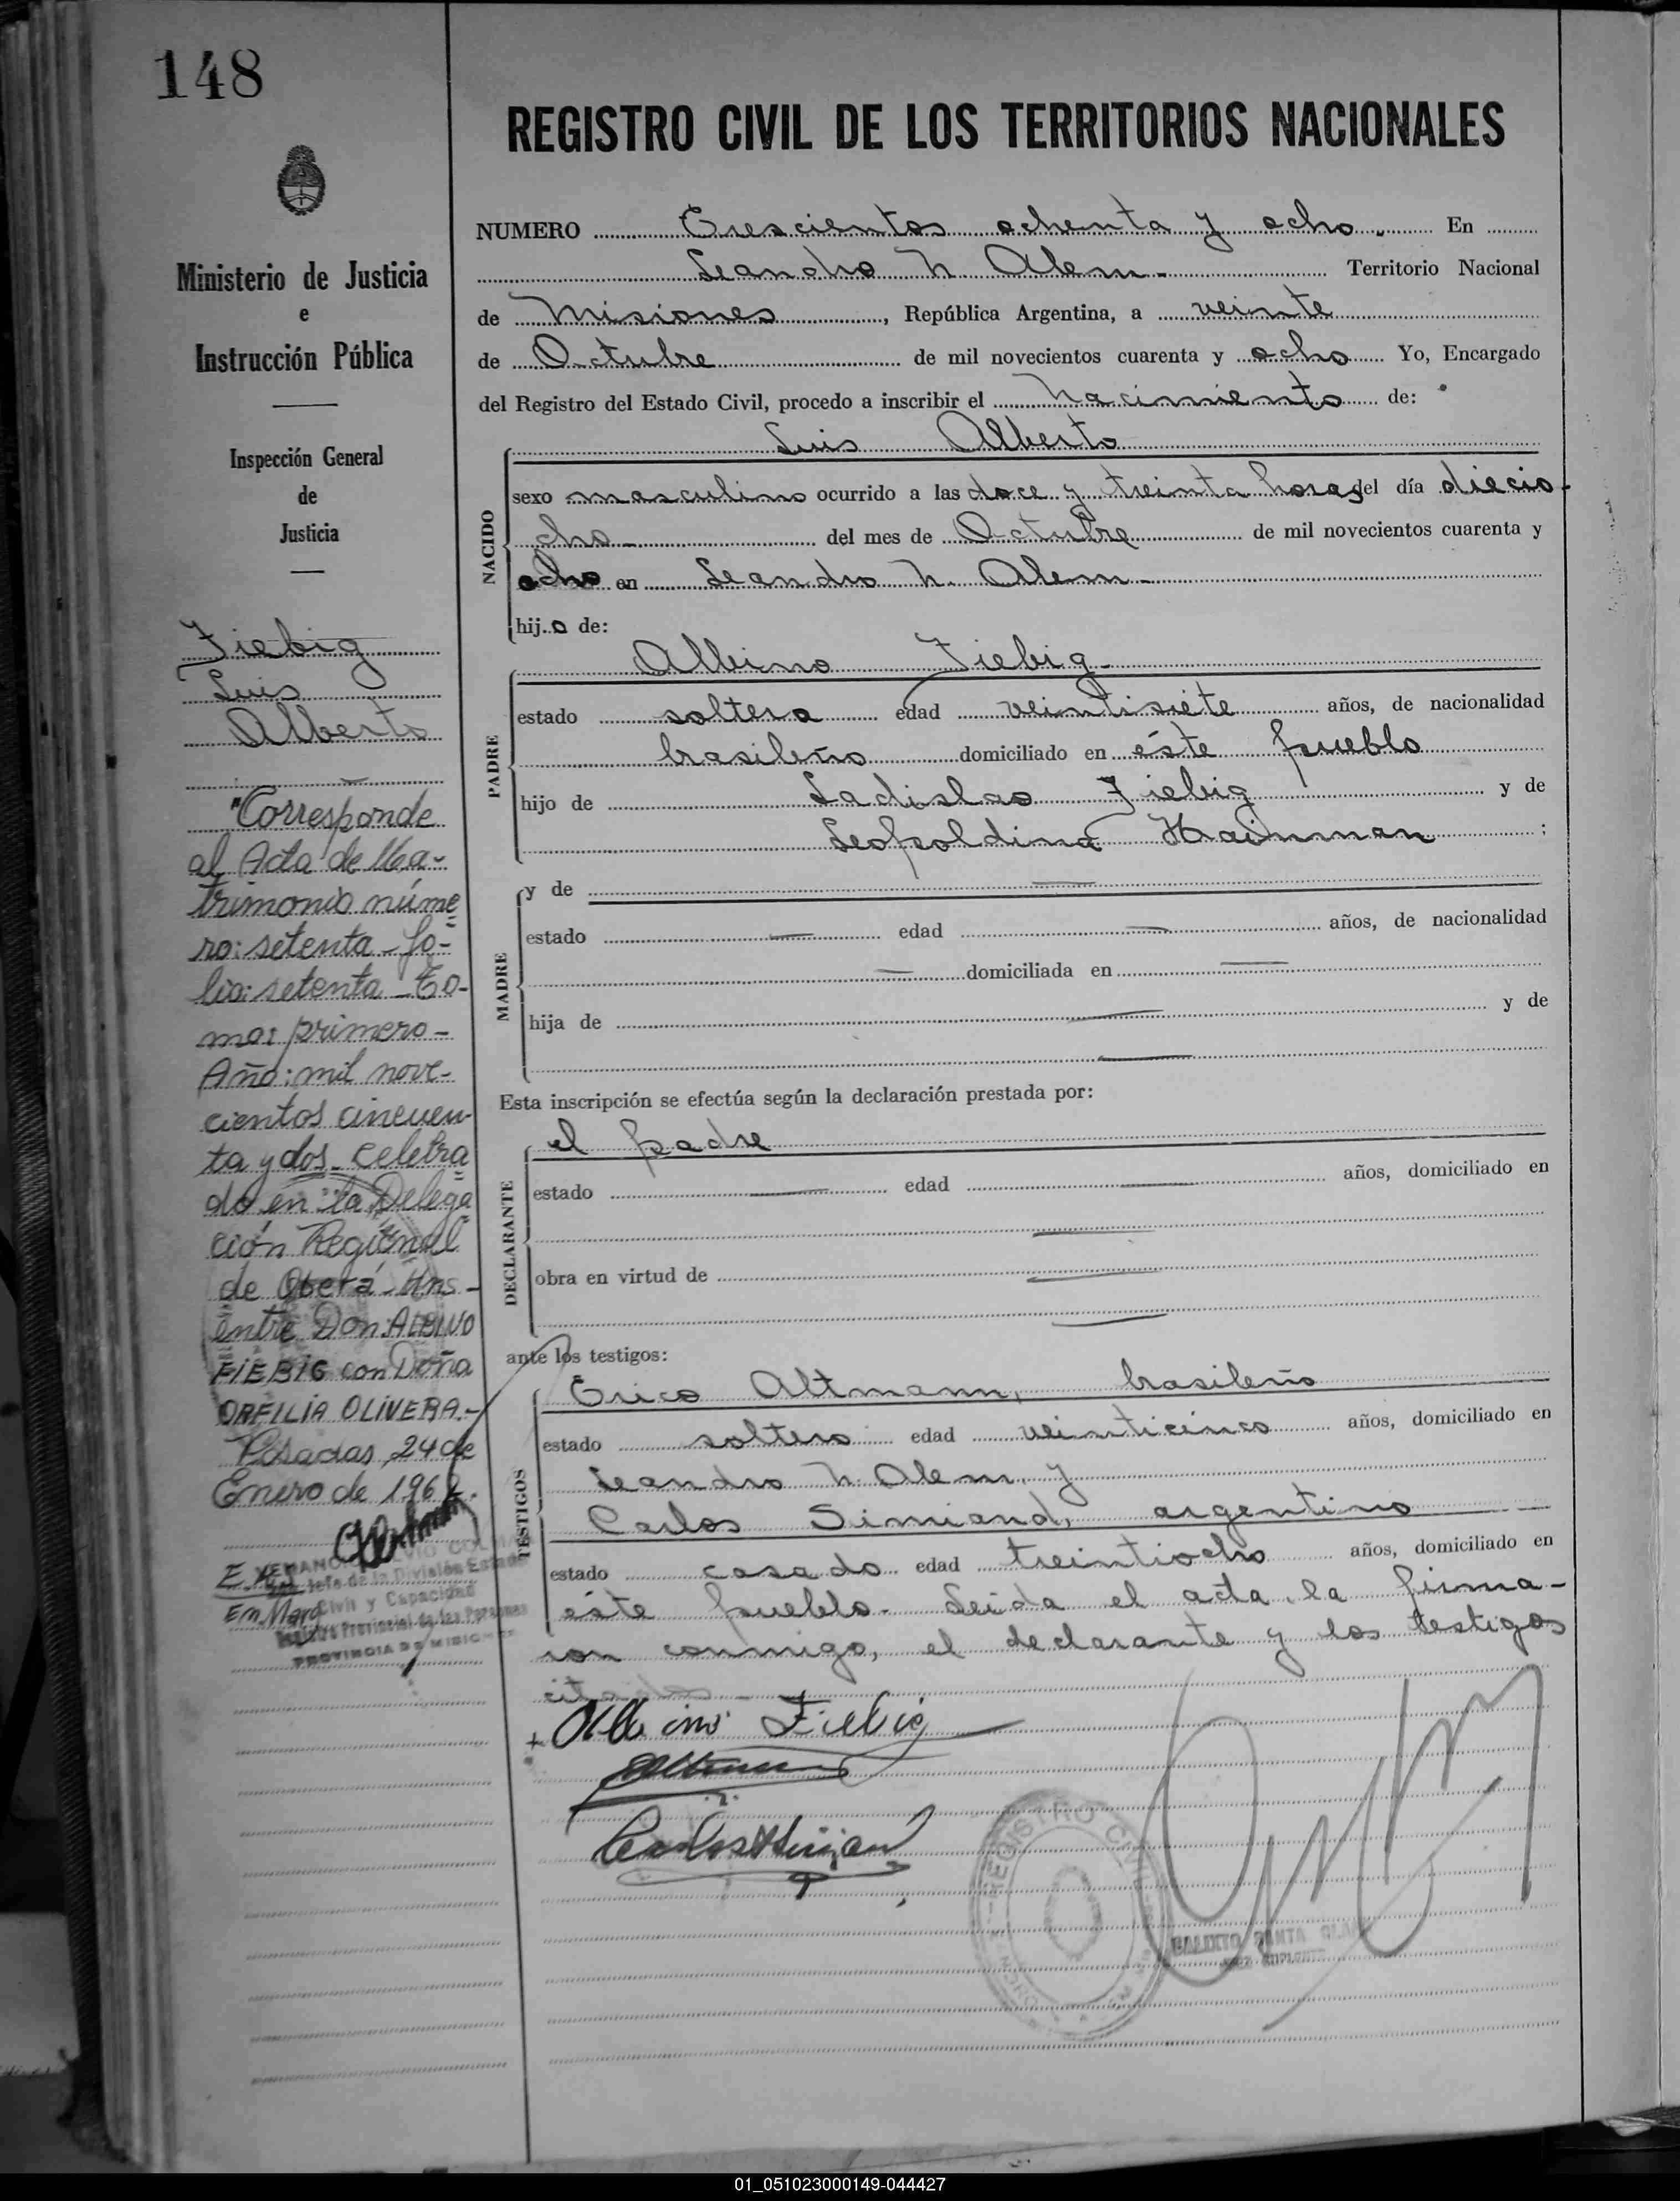 148
REGISTRO CIVIL DE LOS TERRITORIOS NACIONALES
Ministerio de Justicia
e
Instrucción Pública
Inspección General
de
Justicia
Fiebig
Luis
Alberto
"Corresponde
al Acta de Ma-
trimonio núme
ro: setenta - fo-
lio: setenta - To-
mo: primero -
Año: mil nove-
cientos cincuen-
ta y dos - celebra
do en la Delega
ción Regional
de Oberá - Mns -
entre Don: ALBINO
FIEBIG con Doña
ORFILIA OLIVERA.-
Posadas, 24 de
Enero de 196
Jefe de la División Estado
Civil y Capacidad
Registro Provincial de las Personas
PROVINCIA DE MISIONES
NUMERO Trescientos ochenta y ocho. En
Leandro N Alem.- Territorio Nacional
de Misiones, República Argentina, a veinte
de Octubre de mil novecientos cuarenta y ocho Yo, Encargado
del Registro del Estado Civil, procedo a inscribir el Nacimiento de:
Luis Alberto
NACIDO
sexo masculino ocurrido a las doce y treinta horas del día diecio-
cho - del mes de Octubre de mil novecientos cuarenta y
ocho en Leandro N. Alem -
hij.o de:
Albino Fiebig -
PADRE
estado soltero edad veintisiete años, de nacionalidad
brasileño domiciliado en éste pueblo
hijo de Ladislao Fiebig y de
Leopoldina Hainman ;
y de
MADRE
estado edad años, de nacionalidad
domiciliada en
hija de y de
Esta inscripción se efectúa según la declaración prestada por:
el padre
DECLARANTE
estado edad años, domiciliado en
obra en virtud de
ante los testigos:
Erico Altmann, brasileño
TESTIGOS
estado soltero edad veinticinco años, domiciliado en
Leandro N. Alem, y
Carlos Simiand, argentino
estado casado edad treintiocho años, domiciliado en
éste pueblo. Leida el acta, la firma-
ron conmigo, el declarante y los testigos
citados -
Albino Fiebig
REGISTRO CIVIL
CALIXTO SANTA
JUEZ SUPLENTE
01_051023000149-044427